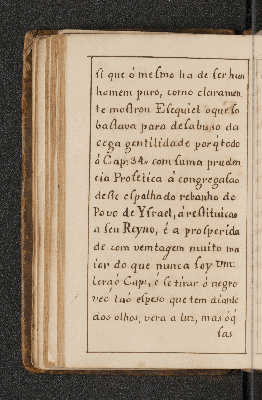 si que ó mesmo ha de ser hum
homem puro, como claramen
te mostrou Esequiel o que so
bastava para desabuso da
cega gentilidade porq̃ todo
ó Cap: 34. com suma pruden
cia Profetica á congregasaõ
deste espalhado rebanho do
Povo de Ysrael, á restituicaõ
a seu Reyno, é a prosperida
de com vemtagem muito ma
ior do que nunca foy
lera ó Cap:, é se tirar ó negro
veo, taõ espeso que tem diante
dos olhos, vera a luz, mas ó q̃
sas